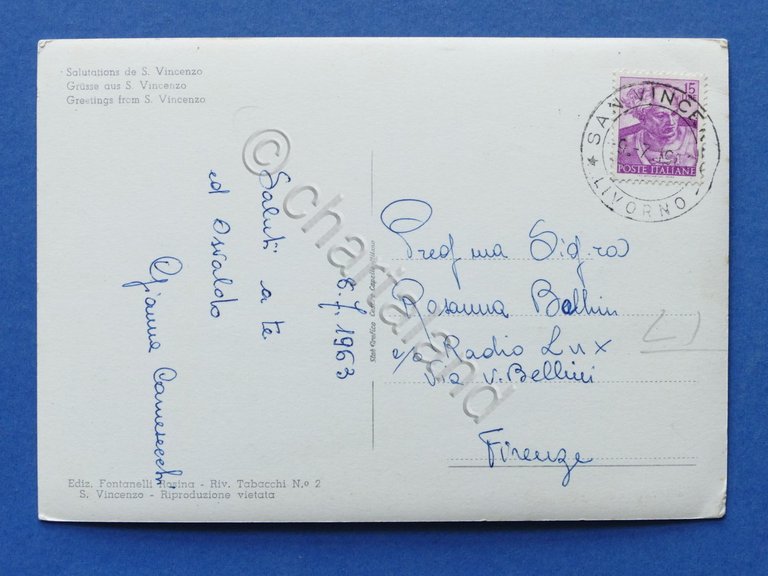 Salutations de S. Vincenzo
Grüsse aus S. Vincenzo
Greetings from S. Vincenzo
15
POSTE ITALIANE
SAN VINCENZO
LIVORNO
6.7.1963
Saluti a te
ed Osvaldo
Gianna Camesecchi
Preg.ma Sig.ra
Rosanna Bellini
c/o Radio Lux
Via V. Bellini
Firenze
Ediz. Fontanelli Rosina - Riv. Tabacchi N.º 2
S. Vincenzo - Riproduzione vietata
© chartaland